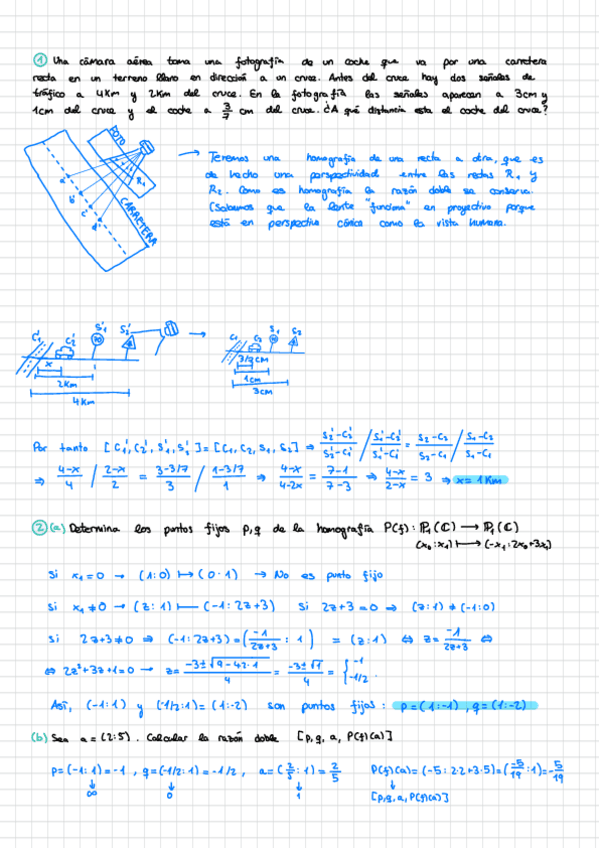 ① Una cámara aérea toma una fotografía de un coche que va por una carretera
recta en un terreno llano en dirección a un cruce. Antes del cruce hay dos señales de
tráfico a 4Km y 2Km del cruce. En la fotografía las señales aparecen a 3cm y
1cm del cruce y el coche a 3/7 cm del cruce. ¿A qué distancia esta el coche del cruce?
FOTO
R₁
CARRETERA
→ Tenemos una homografía de una recta a otra, que es
de hecho una perspectividad entre las rectas R₁ y
R₂. Como es homografía la razón doble se conserva.
(Sabemos que la lente "funciona" en proyectivo porque
está en perspectiva cónica como la vista humana.
C₁' C₂' S₁' S₂' →
x
2Km
4Km
C₁ C₂ S₁ S₂
3/7 CM
1cm
3cm
Por tanto [C₁', C₂', S₁', S₂'] = [C₁, C₂, S₁, S₂] ⇒ S₂'-C₂'/S₂'-C₁' / S₁'-C₂'/S₁'-C₁' = S₂-C₂/S₂-C₁ / S₁-C₂/S₁-C₁
⇒ 4-x/4 / 2-x/2 = 3-3/7/3 / 1-3/7/1 ⇒ 4-x/4-2x = 7-1/7-3 ⇒ 4-x/2-x = 3 ⇒ x = 1 Km
② (a) Determina los puntos fijos p, q de la homografía P(f) : P₁(ℂ) → P₁(ℂ)
(x₀ : x₁) ↦ (-x₁ : 2x₀+3x₁)
Si x₁ = 0 → (1:0) ↦ (0·1) → No es punto fijo
Si x₁ ≠ 0 → (z : 1) ↦ (-1 : 2z+3) Si 2z+3 = 0 ⇒ (z:1) ≠ (-1:0)
Si 2z+3 ≠ 0 ⇒ (-1 : 2z+3) = (-1/2z+3 : 1) = (z:1) ⇔ z = -1/2z+3 ⇔
⇔ 2z²+3z+1=0 → z = -3±√9-4·2·1/4 = -3±√1/4 = { -1 -1/2
Así, (-1:1) y (-1/2:1) = (1:-2) son puntos fijos : p = (1:-1) , q = (1:-2)
(b) Sea a = (2:5) . Calcular la razón doble [p, q, a, P(f)(a)]
p = (-1:1) = -1 , q = (-1/2:1) = -1/2 , a = (2/5:1) = 2/5 P(f)(a) = (-5 : 2·2+3·5) = (-5/19 : 1) = -5/19
∞ 0 1 [p,q,a, P(f)(a)]